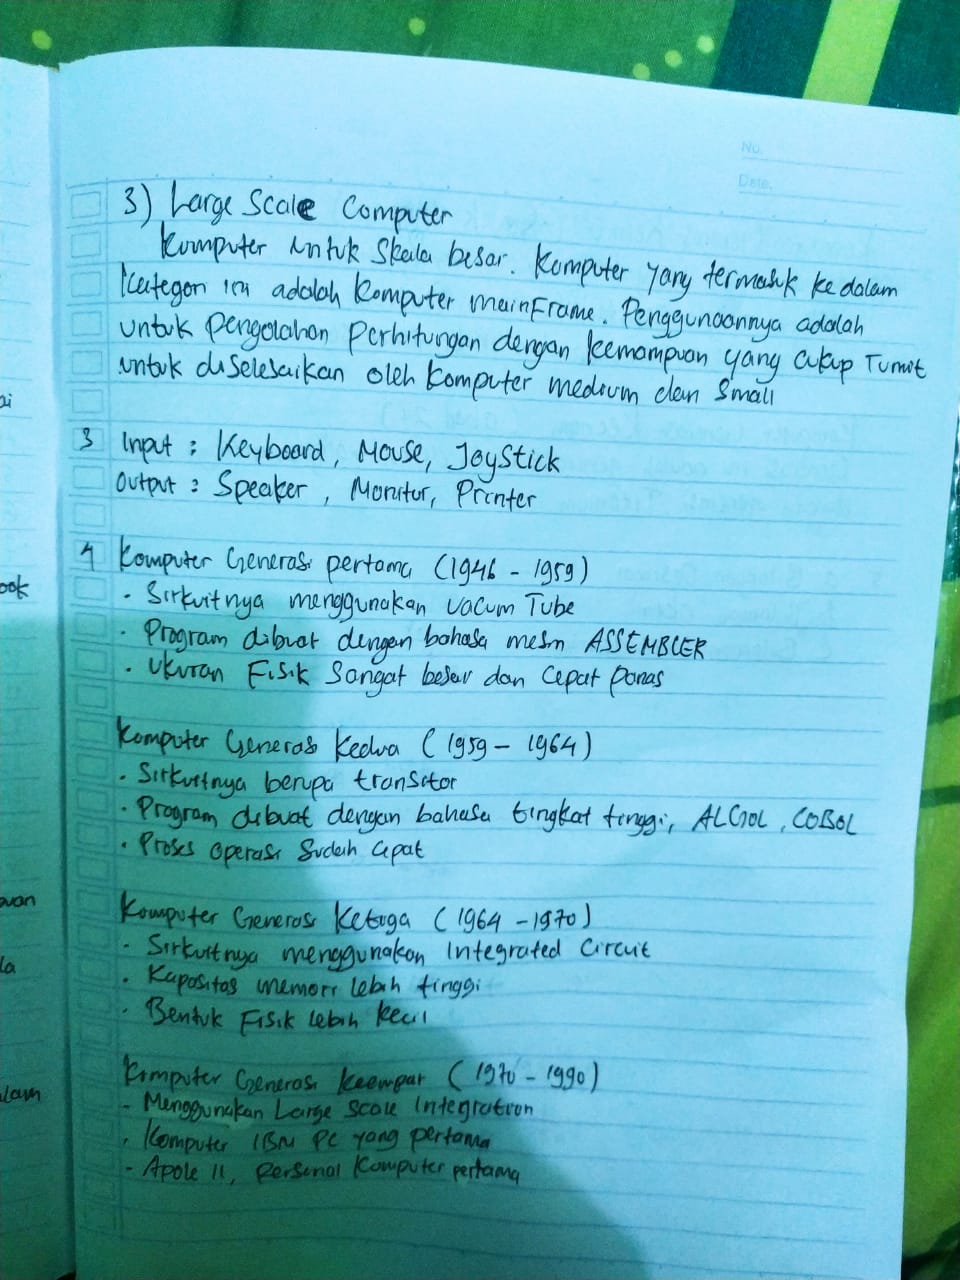 No.
Date.
3) Large Scale Computer
Komputer untuk Skala besar. Komputer yang termasuk kedalam
Kategori ini adalah Komputer mainFrame. Penggunaannya adalah
untuk pengolahan Perhitungan dengan kemampuan yang cukup rumit
untuk diselesaikan oleh Komputer medium dan Small
3 Input : Keyboard, Mouse, JoyStick
Output : Speaker , Monitor, Printer
4 Komputer Generasi pertama (1946 - 1959)
• Sirkuitnya menggunakan vacum Tube
• Program dibuat dengan bahasa mesin ASSEMBLER
• Ukuran Fisik Sangat besar dan Cepat panas
Komputer Generasi Kedua (1959 - 1964)
• Sirkuitnya berupa transitor
• Program dibuat dengan bahasa tingkat tinggi, ALGOL , COBOL
• Proses Operasi Sudah Cepat
Komputer Generasi Ketiga (1964 - 1970)
- Sirkuitnya menggunakan Integrated Circuit
• Kapasitas memori lebih tinggi
• Bentuk Fisik lebih Kecil
Komputer Generasi Keempat (1970 - 1990)
- Menggunakan Large Scale Integration
• Komputer IBM PC yang pertama
- Apple II, Personal Komputer pertama
ai
ook
la